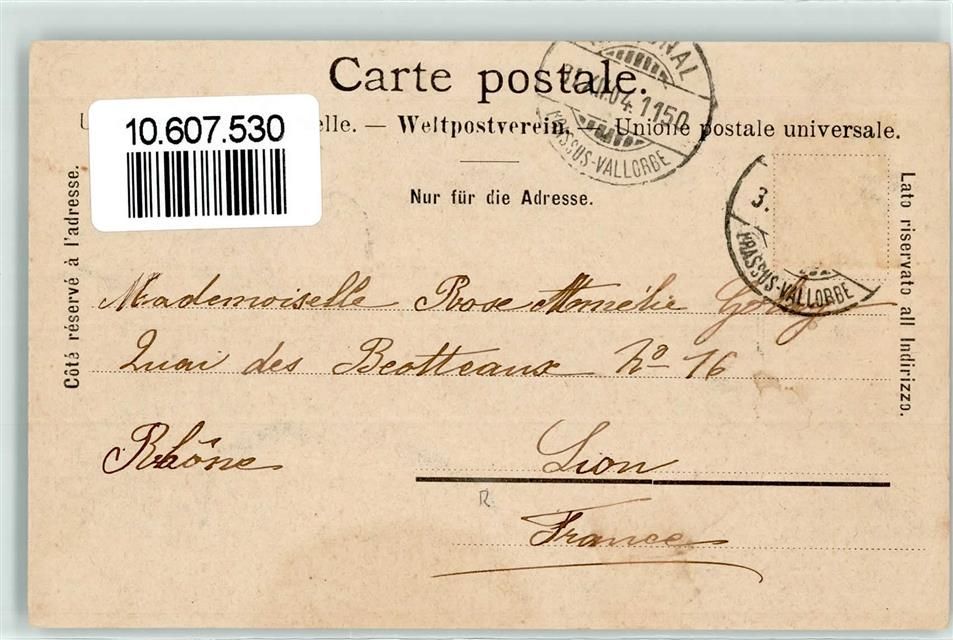 Carte postale.
10.607.530
elle. — Weltpostverein. — Unione postale universale.
Nur für die Adresse.
Côté réservé à l'adresse.
Lato riservato all Indirizzo.
04.1150
BRASSUS-VALLORBE
3.
BRASSUS-VALLORBE
Mademoiselle Rose Amélie
Quai des Brotteaux No 16
Rhône Lion
France